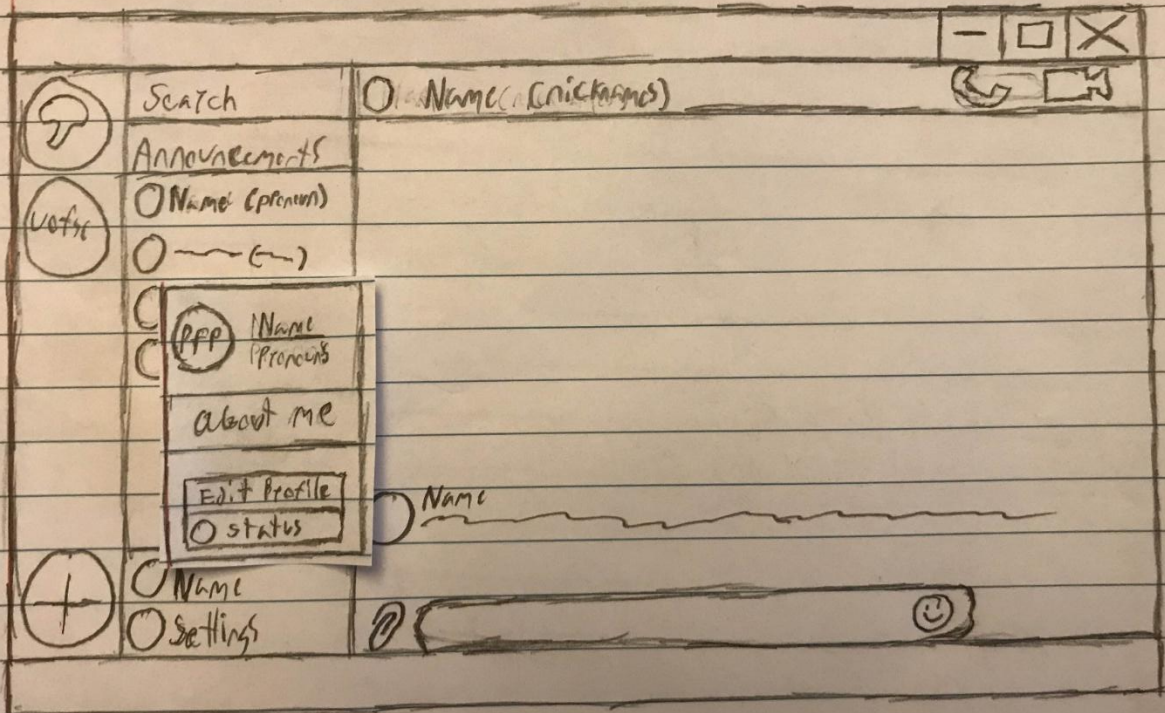 Search
Name (nicknames)
Announcements
Name (pronoun)
UofSC
PFP
Name
Pronouns
About me
Edit Profile
status
Name
Name
Settings